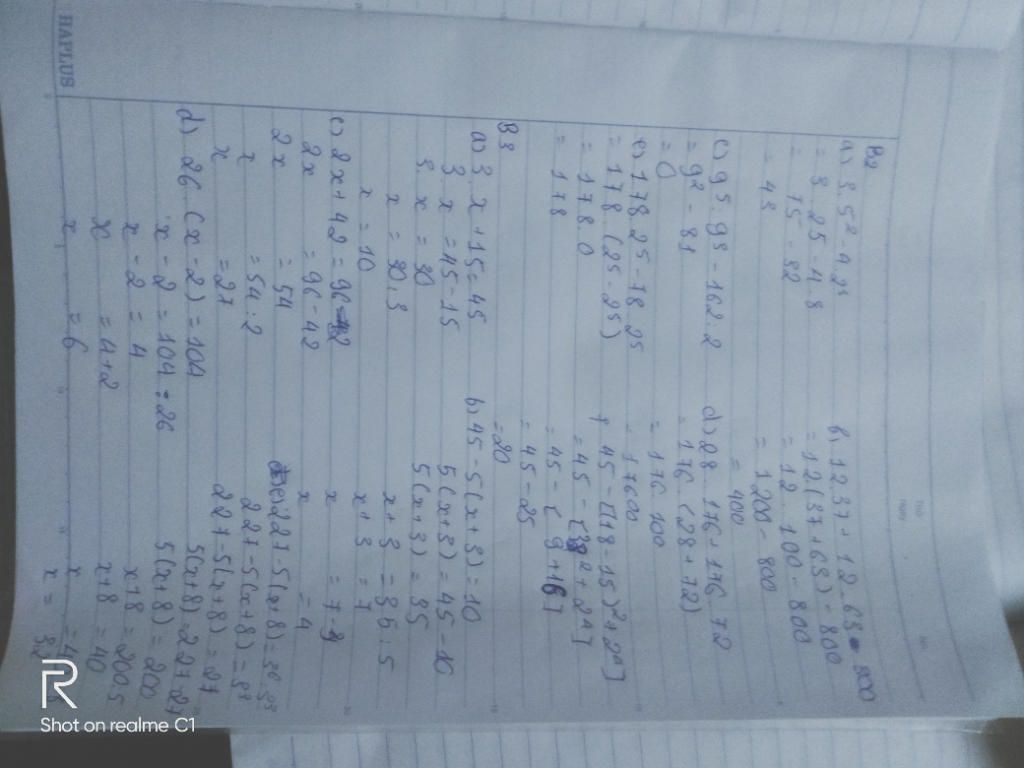 HAPLUS
Thứ
Ngày
No.
B2
a) 3.5² - 4.2³
= 3.25 - 4.8
= 75 - 32
= 43
b, 12.37 + 12.63 - 800
= 12(37+63) - 800
= 12.100 - 800
= 1200 - 800
= 400
c) 9⁵:9³ - 162:2
= 9² - 81
= 0
d) 28.176 + 176.72
= 176.(28+72)
= 176.100
= 17600
e) 178.25 - 178.25
= 178(25-25)
= 178.0
= 178
f 45 - [(18-15)²+2⁴]
= 45 - [3²+2⁴]
= 45 - [9+16]
= 45 - 25
= 20
B3
a) 3.x + 15 = 45
3.x = 45-15
3.x = 30
x = 30:3
x = 10
b, 45 - 5(x+3) = 10
5(x+3) = 45-10
5(x+3) = 35
x+3 = 35:5
x+3 = 7
x = 7-3
x = 4
c) 2x + 42 = 96
2x = 96-42
2x = 54
x = 54:2
x = 27
d) 26.(x-2) = 104
x-2 = 104:26
x-2 = 4
x = 4+2
x = 6
227-5(x+8) = 3⁶:3³
227-5(x+8) = 3³
227-5(x+8) = 27
5(x+8) = 227-27
5(x+8) = 200
x+8 = 200:5
x+8 = 40
x = 32
Shot on realme C1